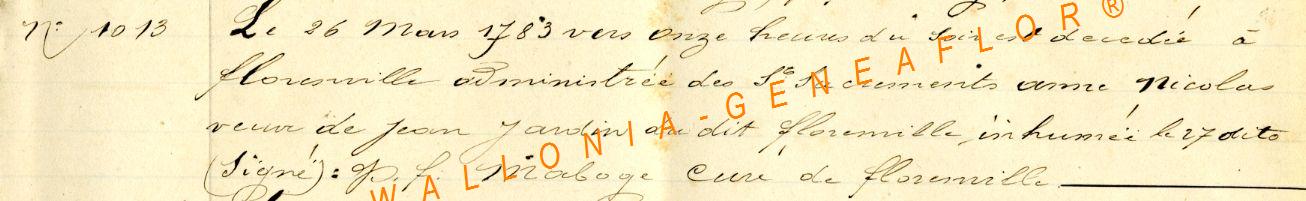 N° 1013 Le 26 Mars 1783 vers onze heures du soir est decedée à
florenville administrée des Sts Sacrements anne Nicolas
veuve de Jean Jardin du dit florenville inhumée le 27 dito
(Signé): P. f. Maboge Curé de florenville
WALLONIA-GENEAFLOR®